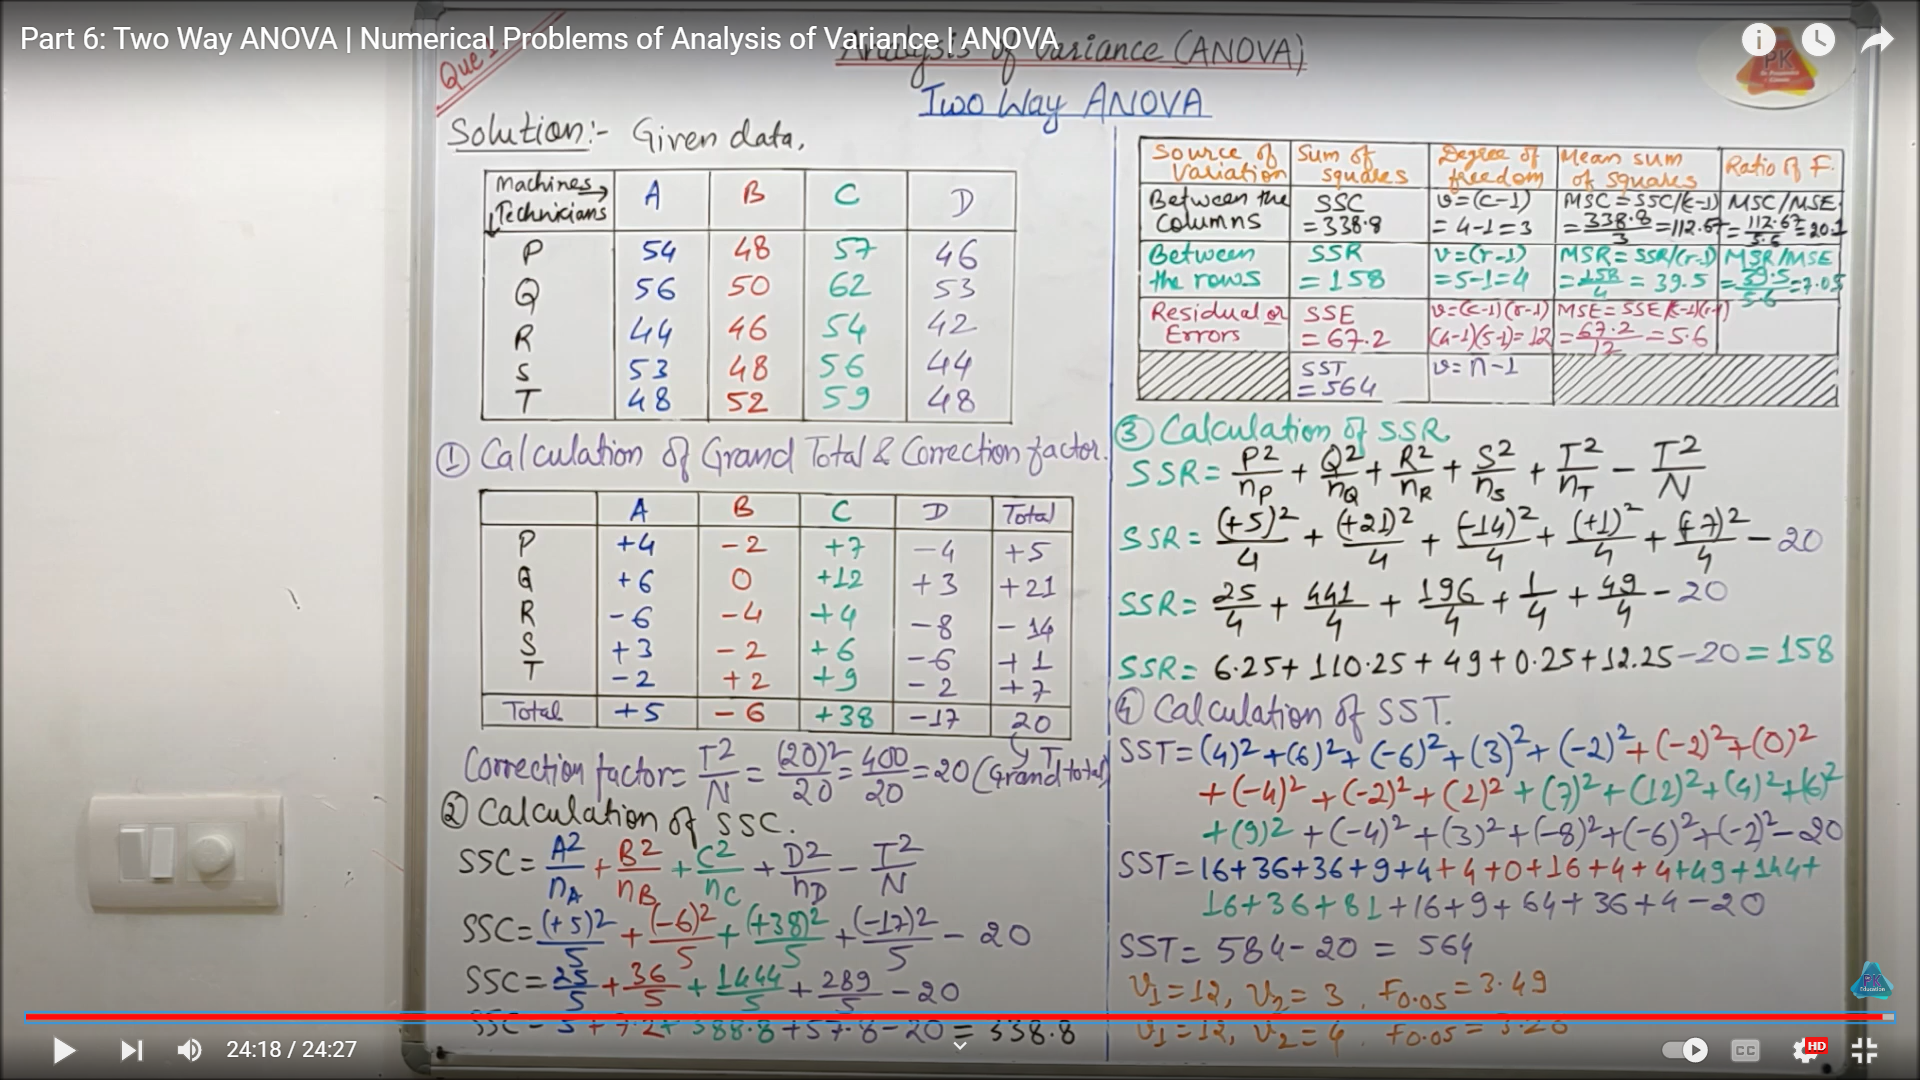 Part 6: Two Way ANOVA | Numerical Problems of Analysis of Variance | ANOVA
Que-1
Analysis of Variance (ANOVA)
Two Way ANOVA
PK
Solution:- Given data,
Machines→ A B C D
↓Technicians
P 54 48 57 46
Q 56 50 62 53
R 44 46 54 42
S 53 48 56 44
T 48 52 59 48
① Calculation of Grand Total & Correction factor.
A B C D Total
P +4 -2 +7 -4 +5
Q +6 0 +12 +3 +21
R -6 -4 +4 -8 -14
S +3 -2 +6 -6 +1
T -2 +2 +9 -2 +7
Total +5 -6 +38 -17 20
Correction factor = T²/N = (20)²/20 = 400/20 = 20 (↳ T Grand total)
② Calculation of SSC.
SSC = A²/nA + B²/nB + C²/nC + D²/nD - T²/N
SSC = (+5)²/5 + (-6)²/5 + (+38)²/5 + (-17)²/5 - 20
SSC = 25/5 + 36/5 + 1444/5 + 289/5 - 20
SSC = 5 + 7.2 + 388.8 + 57.8 - 20 = 338.8
Source of Variation Sum of squares Degree of freedom Mean sum of squares Ratio of F.
Between the columns SSC = 338.8 v=(c-1) = 4-1=3 MSC = SSC/(c-1) = 338.8/3 = 112.67 MSC/MSE = 112.67/5.6 = 20.1
Between the rows SSR = 158 v=(r-1) = 5-1=4 MSR = SSR/(r-1) = 158/4 = 39.5 MSR/MSE = 39.5/5.6 = 7.05
Residual or Errors SSE = 67.2 v=(c-1)(r-1) (4-1)(5-1)=12 MSE = SSE/(c-1)(r-1) = 67.2/12 = 5.6
SST = 564 v= n-1
③ Calculation of SSR.
SSR = P²/nP + Q²/nQ + R²/nR + S²/nS + T²/nT - T²/N
SSR = (+5)²/4 + (+21)²/4 + (-14)²/4 + (+1)²/4 + (+7)²/4 - 20
SSR = 25/4 + 441/4 + 196/4 + 1/4 + 49/4 - 20
SSR = 6.25 + 110.25 + 49 + 0.25 + 12.25 - 20 = 158
④ Calculation of SST.
SST = (4)² + (6)² + (-6)² + (3)² + (-2)² + (-2)² + (0)²
+ (-4)² + (-2)² + (2)² + (7)² + (12)² + (4)² + (6)²
+ (9)² + (-4)² + (3)² + (-8)² + (-6)² + (-2)² - 20
SST = 16+36+36+9+4+4+0+16+4+4+49+144+
16+36+81+16+9+64+36+4-20
SST = 584-20 = 564
v₁=12, v₂=3, F0.05 = 3.49
v₁=12, v₂=4, F0.05 = 3.26
PK
Education
24:18 / 24:27
CC
HD